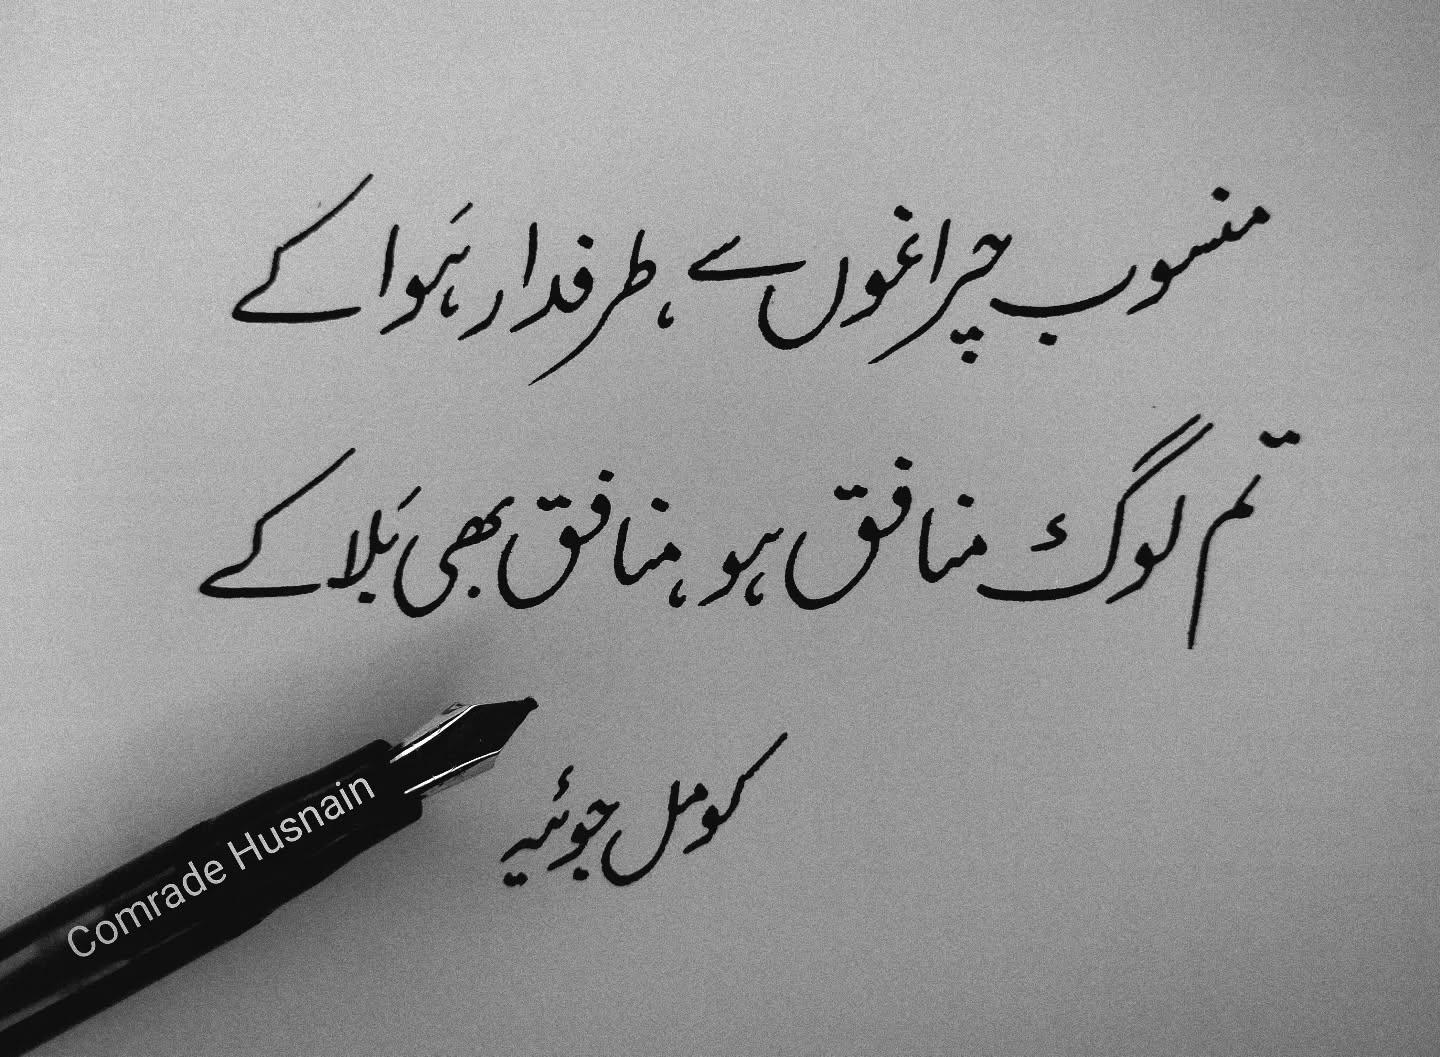 منسوب چراغوں سے، طرفدار ہَوا کے
تم لوگ منافق ہو، منافق بھی بَلا کے
کومل جوئیہ
Comrade Husnain